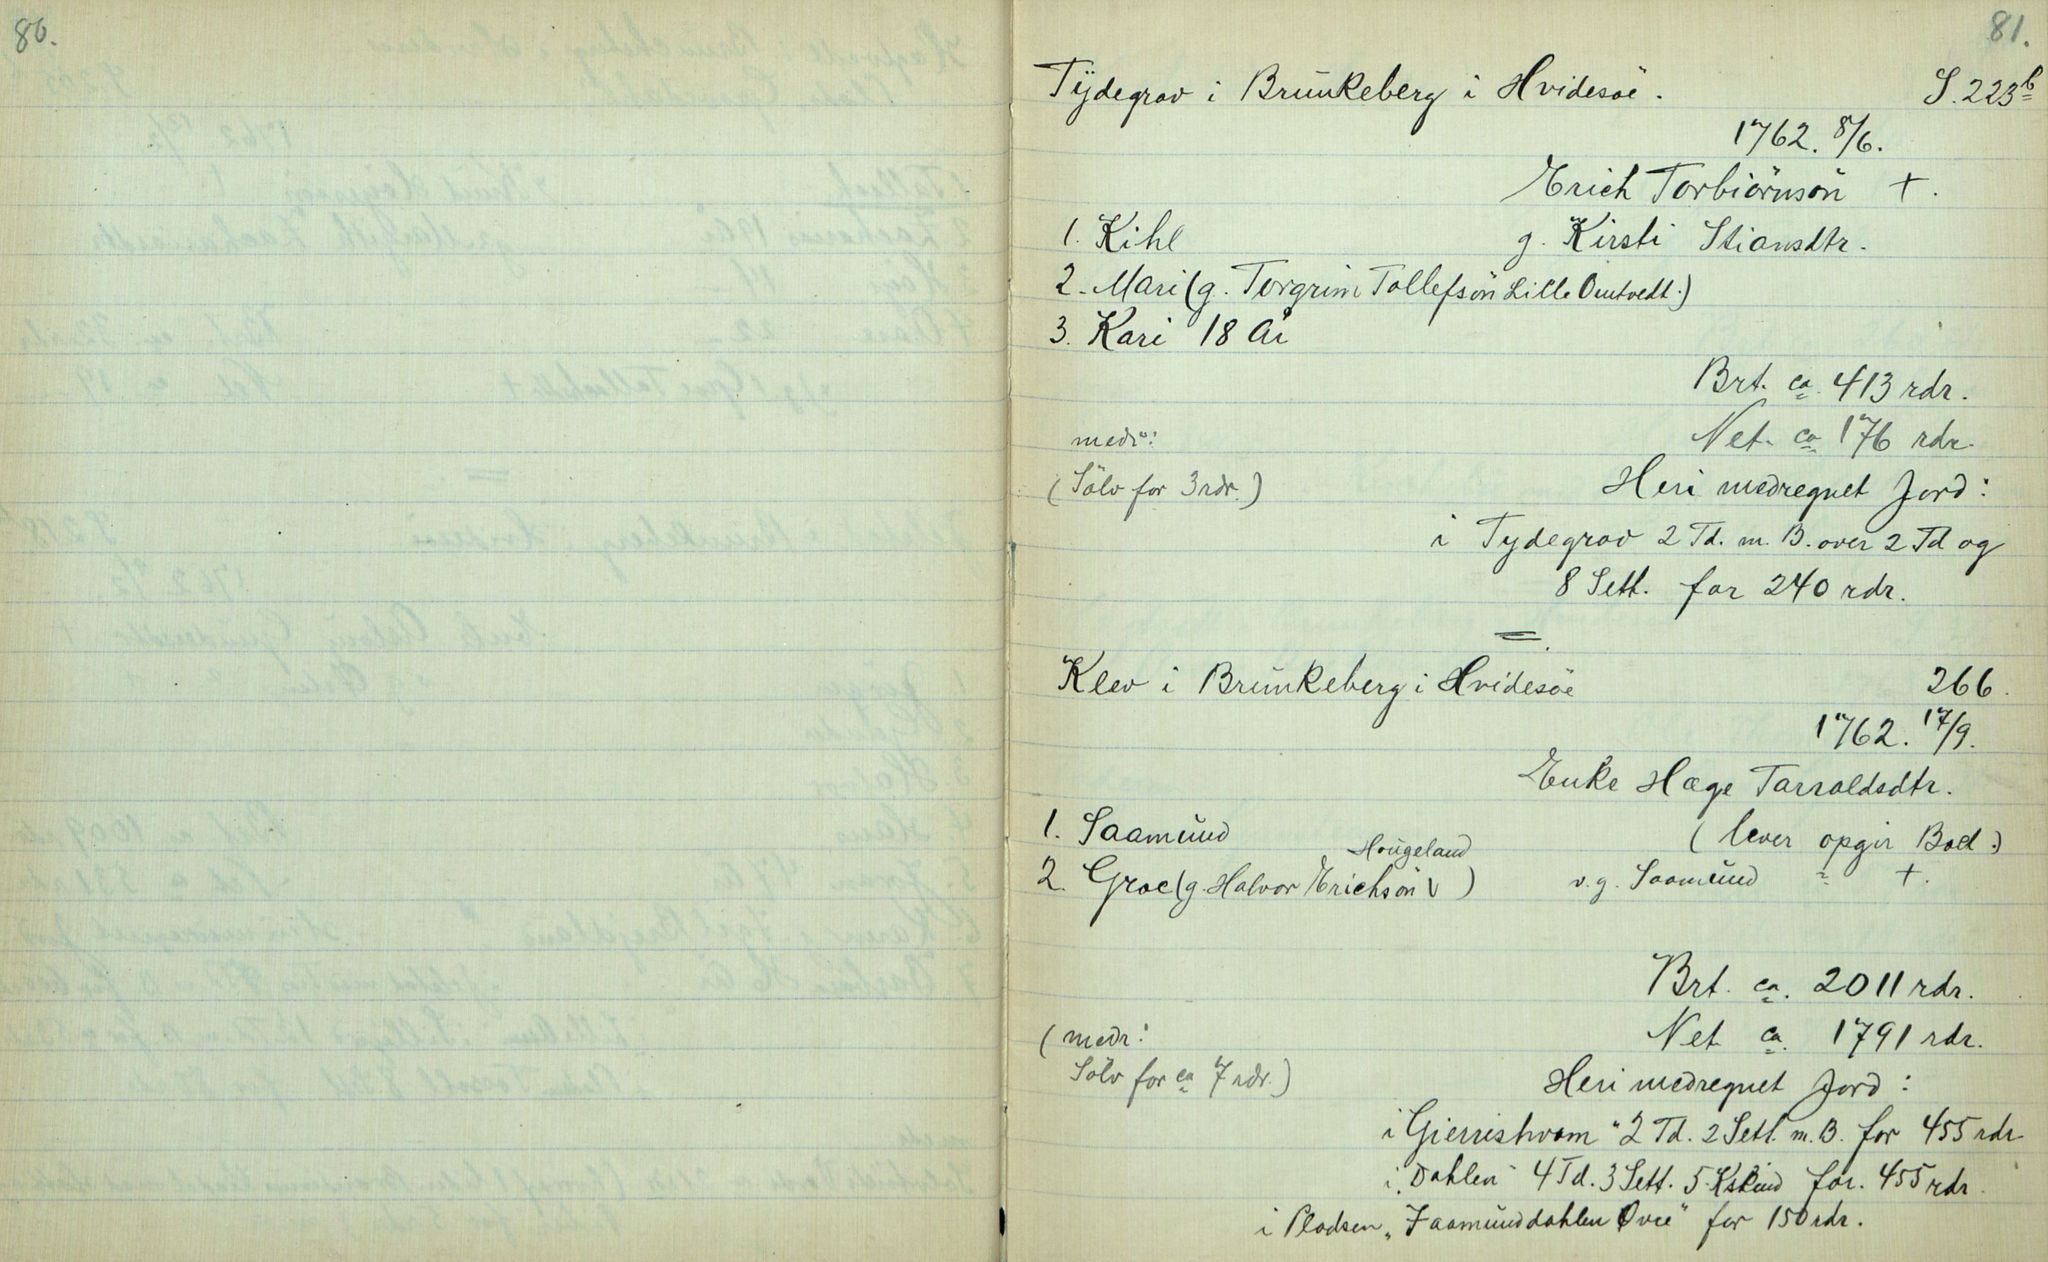 80.
81.
Tÿdegrav i Brünkeberg i Hvidesöe. S. 223b
1762. 8/6.
Erich Torbiörnsön +.
1. Kihl g. Kirsti Stiansdtr.
2. Mari (g. Torgrim Tollefsön Lille Omtvedt.)
3. Kari 18 år
Brt. ca. 413 rdr.
medr: Net. ca. 176 rdr.
(Sölv for 3 rdr.) Heri medregnet Jord:
i Tydegrav 2 Td. m. B. over 2 Td og
8 Sett. for 240 rdr.
=
Klev i Brünkeberg i Hvidesöe 266.
1762. 17/9.
Enke Hæge Tarraldsdtr.
1. Saamünd (lever opgir Boet.)
Hougeland
2. Groe (g. Halvor Erichsön V ) v. g. Saamünd " +.
Brt. ca. 2011 rdr.
(medr: Net ca. 1791 rdr.
Sölv for ca 7 rdr.) Heri medregnet Jord:
i Gierrishvam " 2 Td. 2 Sett. m. B. for 455 rdr
i „Dahlen" 4 Td. 3 Sett. 5 Kskind for. 455 rdr.
i Pladsen „Saamünddahlen Øvre" for 150 rdr.